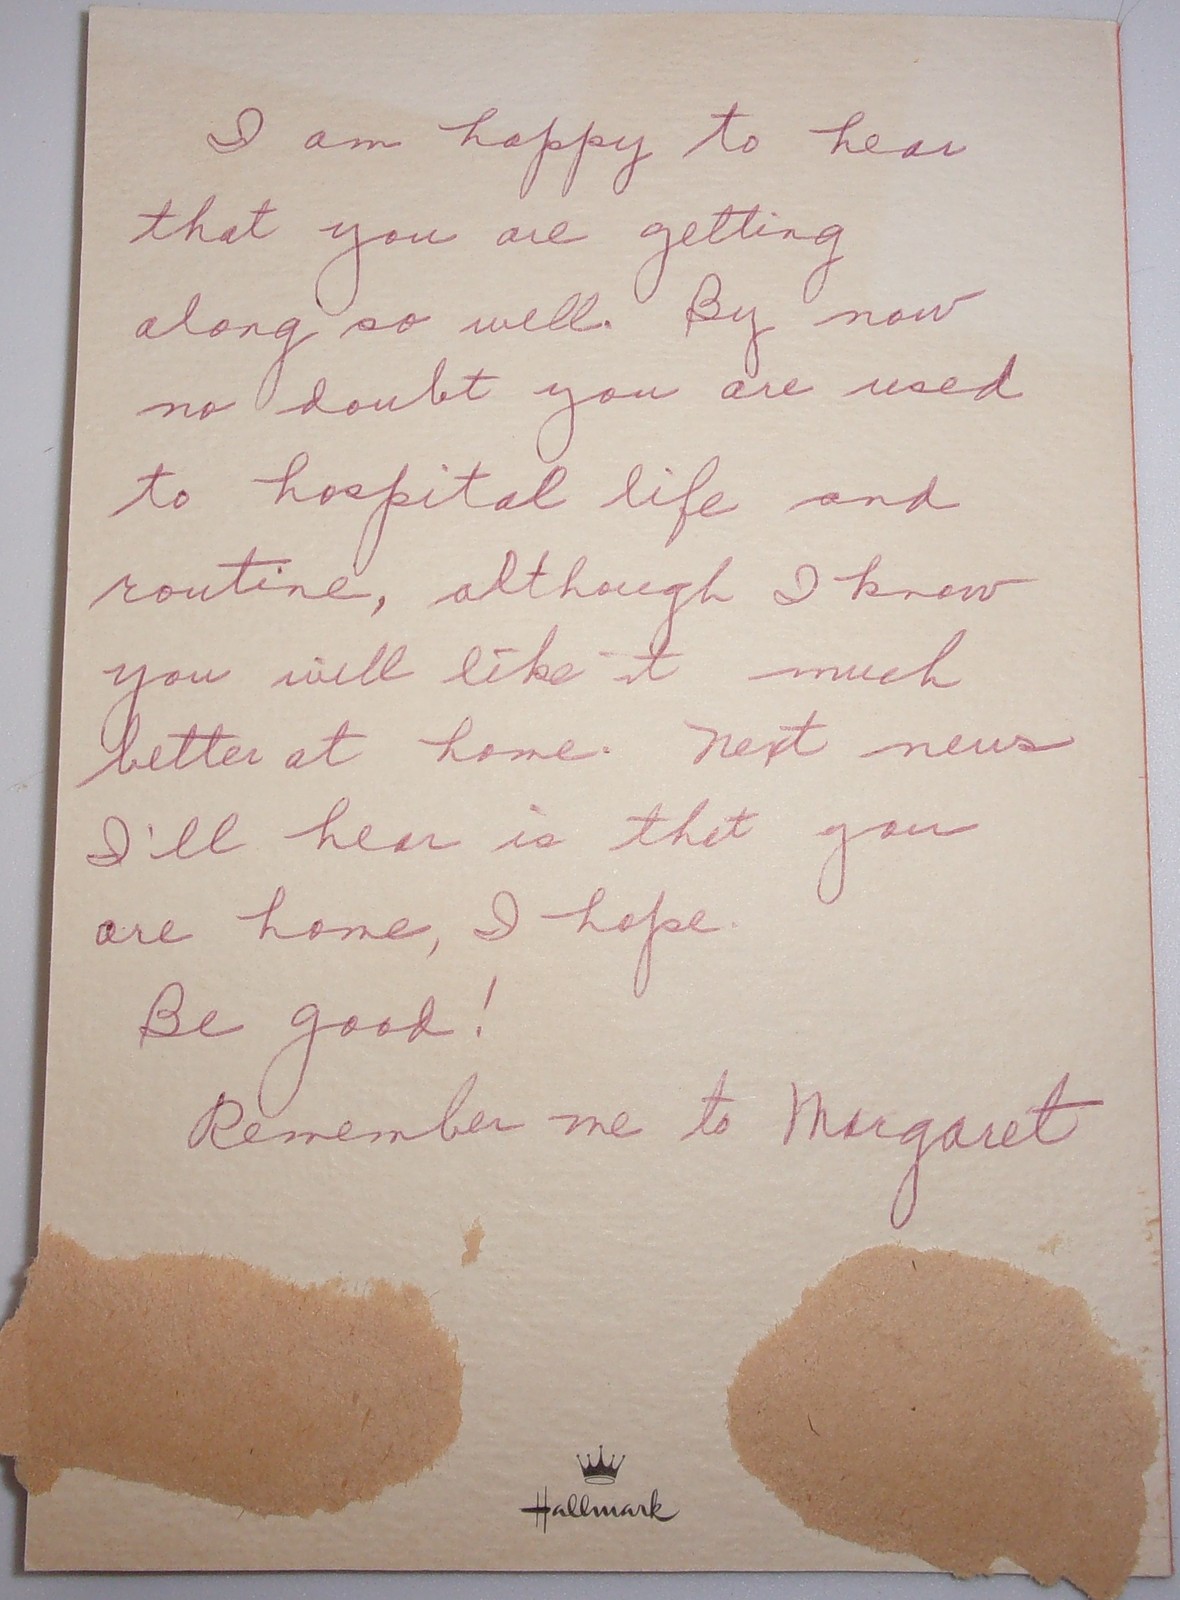 I am happy to hear
that you are getting
along so well. By now
no doubt you are used
to hospital life and
routine, although I know
you will like it much
better at home. Next news
I'll hear is that you
are home, I hope.
Be good!
Remember me to Margaret
Hallmark